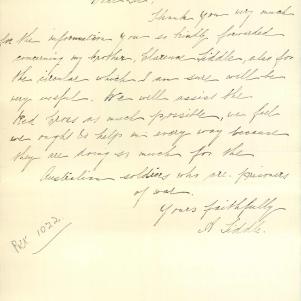 Dear Sir,
Thank you very much
for the information you so kindly forwarded
concerning my brother, Clarence Liddle, also for
the circular which I am sure will be
very useful. We will assist the
Red Cross as much possible, we feel
we ought to help in every way because
they are doing so much for the
Australian soldiers who are prisoners
of war.
Yours faithfully
A Liddle.
1022